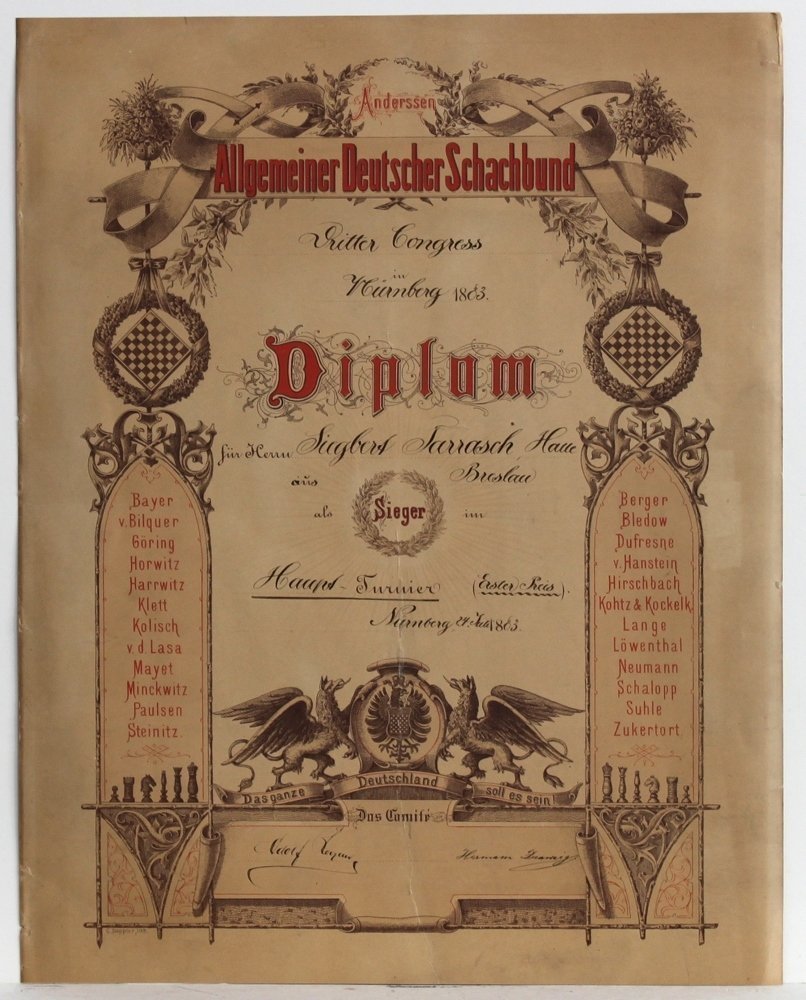 Anderssen
Allgemeiner Deutscher Schachbund
Dritter Congress
in
Nürnberg 1883.
Diplom
für Herrn Siegbert Tarrasch
aus Breslau
als Sieger im
Haupt-Turnier (Erster Preis).
Nürnberg 1883.
Bayer
v. Bilquer
Göring
Horwitz
Harrwitz
Klett
Kolisch
v. d. Lasa
Mayet
Minckwitz
Paulsen
Steinitz.
Berger
Bledow
Dufresne
v. Hanstein
Hirschbach
Kohtz & Kockelk.
Lange
Löwenthal
Neumann
Schalopp
Suhle
Zukertort.
Das ganze Deutschland soll es sein!
Das Comité
Adolf
Hermann